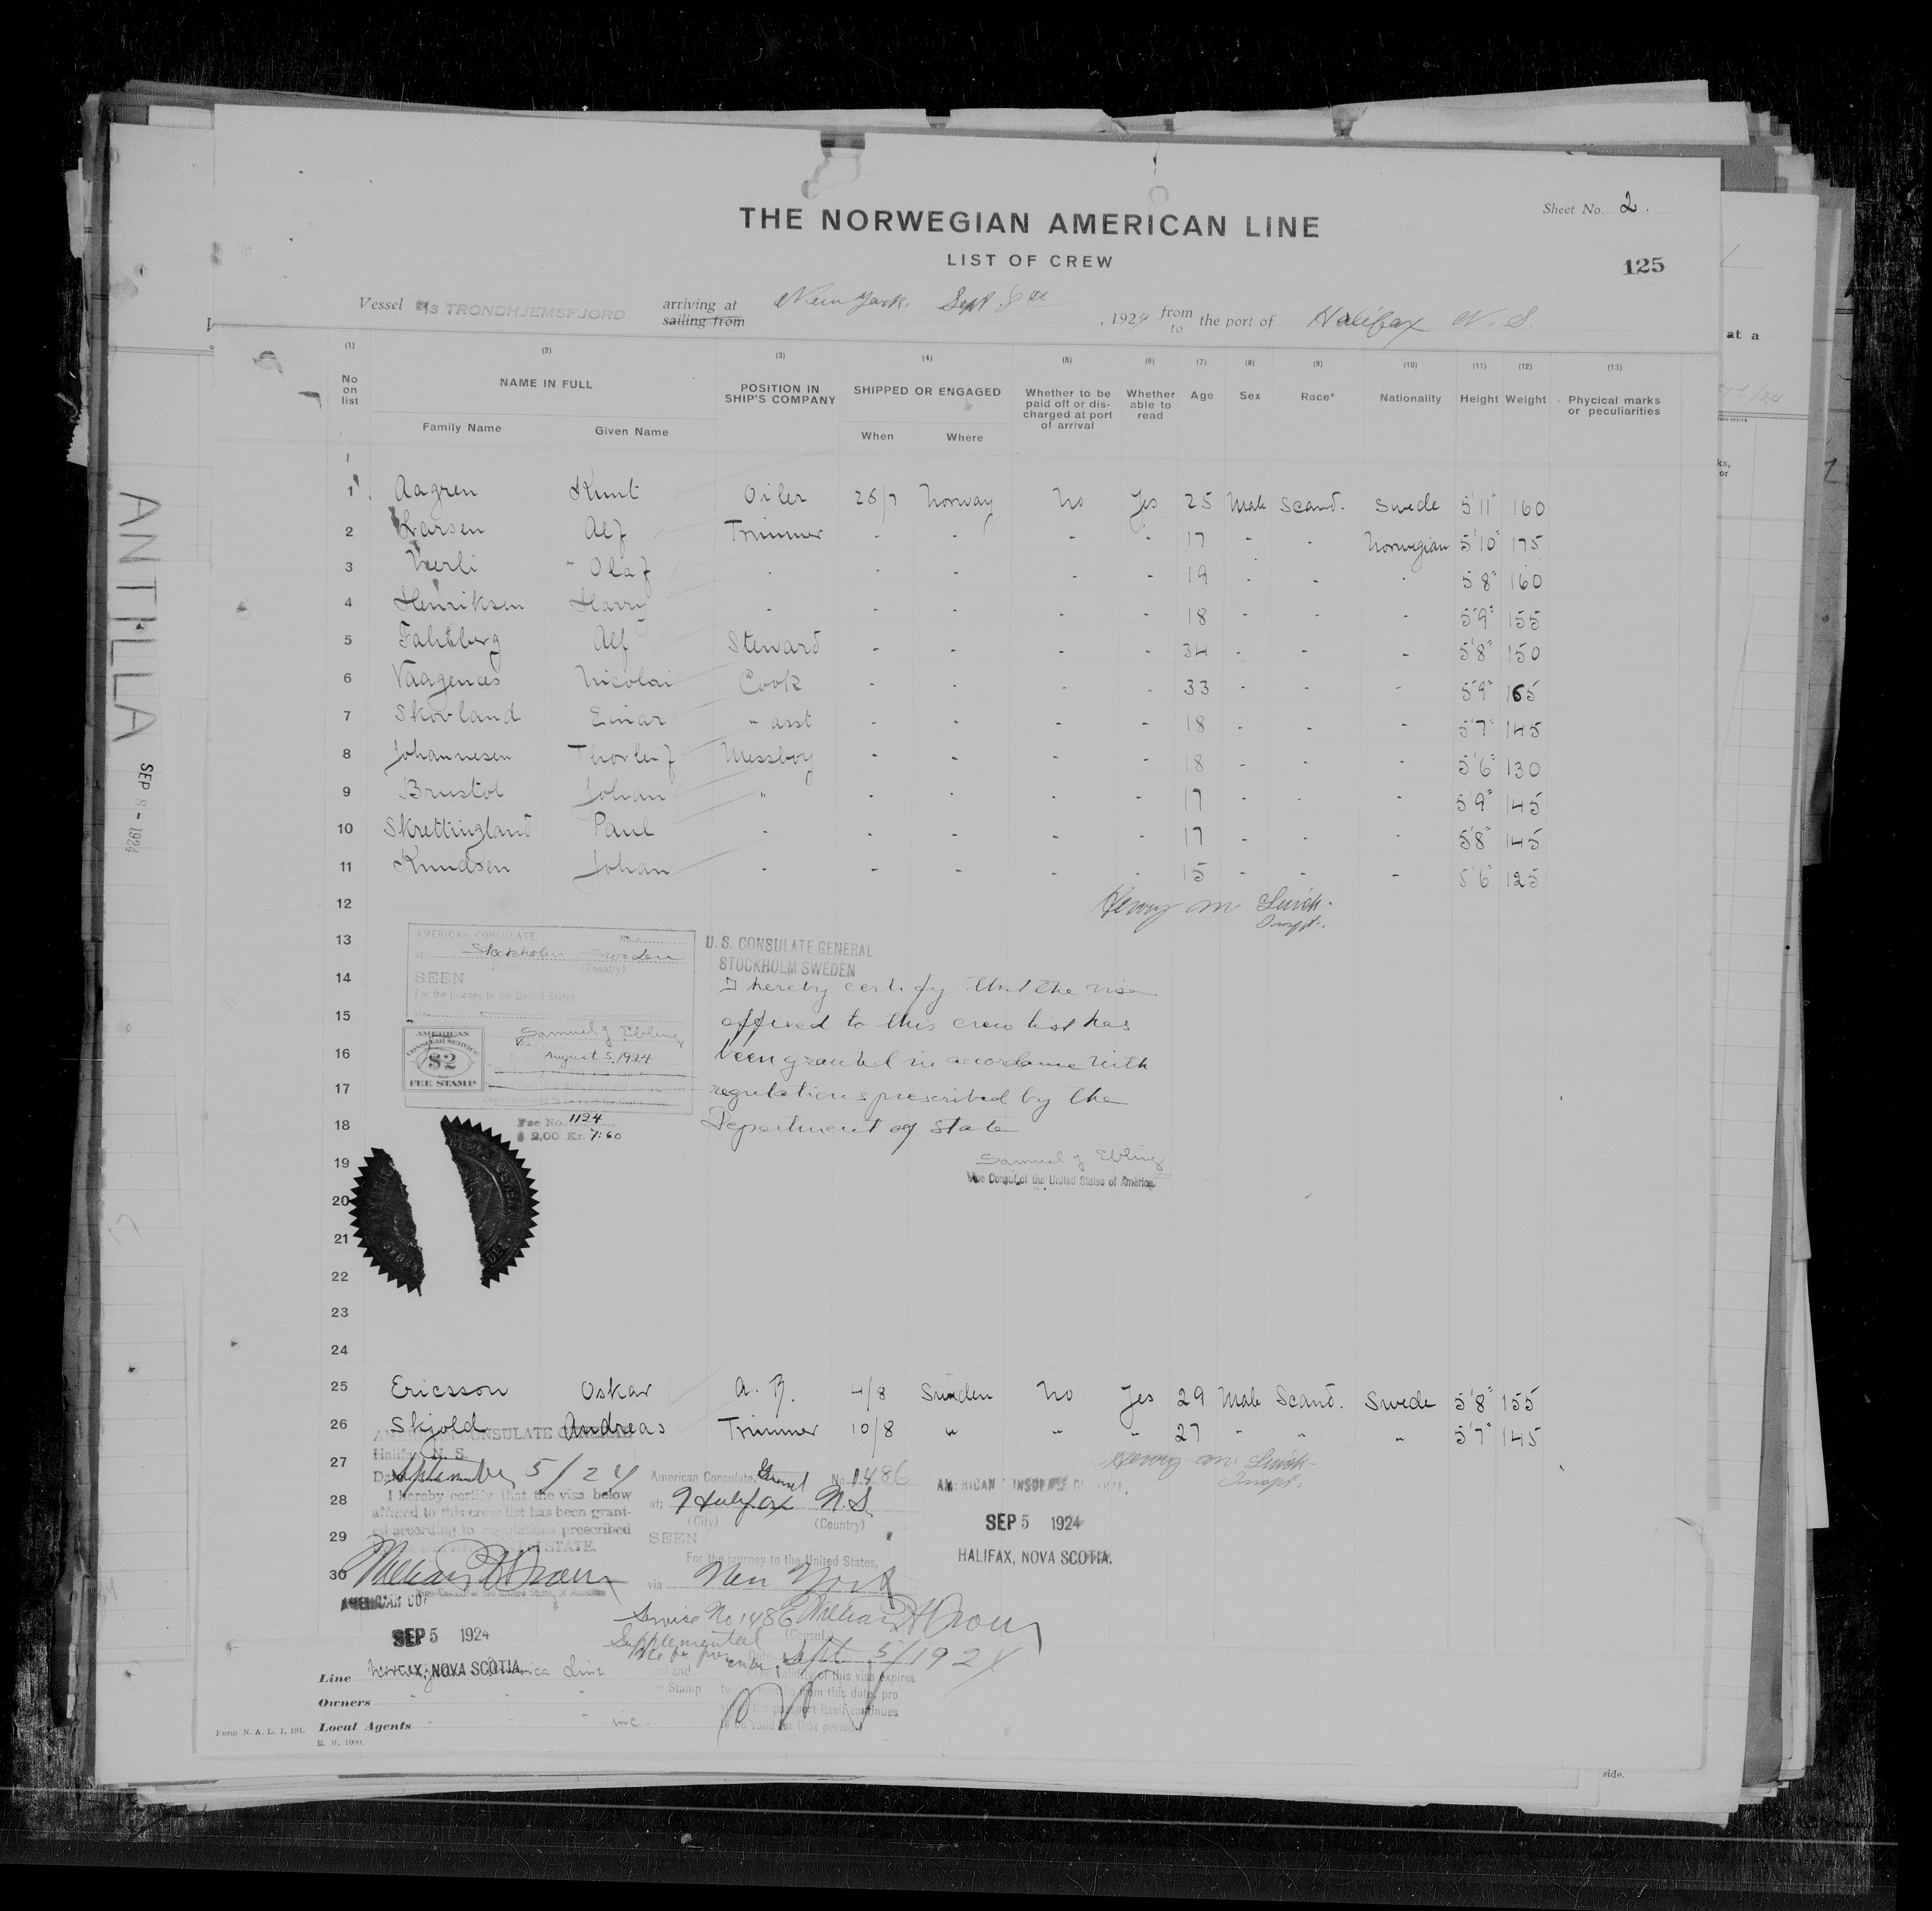 Sheet No. 2.
THE NORWEGIAN AMERICAN LINE
LIST OF CREW
125
Vessel S/S TRONDHJEMSFJORD arriving at sailing from New York, Sept 8th, 1924 from to the port of Halifax N. S.
(1) (2) (3) (4) (5) (6) (7) (8) (9) (10) (11) (12) (13)
No on list NAME IN FULL POSITION IN SHIP'S COMPANY SHIPPED OR ENGAGED Whether to be paid off or discharged at port of arrival Whether able to read Age Sex Race+ Nationality Height Weight Phycical marks or peculiarities
Family Name Given Name When Where
1 Aagren Knut Oiler 26/7 Norway No Yes 25 Male Scand. Swede 5'11" 160
2 Larsen Alf Trimmer - - - - 17 - - Norwegian 5'10" 175
3 Olaf - - - - 19 - - - 5'8" 160
4 Henriksen Harry - - - - - 18 - - - 5'9" 155
5 Alf Steward - - - - 34 - - - 5'8" 150
6 Vaagenes Nicolai Cook - - - - 33 - - - 5'9" 165
7 Skovland Einar " asst - - - - 18 - - - 5'7" 145
8 Johannesen Thorleif Messboy - - - - 18 - - - 5'6" 130
9 Brustol Johan " - - - - 17 - - - 5'9" 145
10 Skrettingland Paul - - - - - 17 - - - 5'8" 145
11 Knudsen Johan - - - - - 15 - - - 5'6" 125
12 Henry M
Inspt.
13
14
15
16
17
18
19
20
21
22
23
24
AMERICAN CONSULATE No.
at Stockholm Sweden
(Country)
SEEN
For the journey to the United States
via
Samuel J Ebling
August 5, 1924
AMERICAN CONSULAR SERVICE
$2
FEE STAMP
Fee No. 1124
$ 2,00 Kr. 7:60
U. S. CONSULATE GENERAL
STOCKHOLM SWEDEN
I hereby certify that the visa
affixed to this crew list has
been granted in accordance with
regulations prescribed by the
Department of State
Samuel J Ebling
Vice Consul of the United States of America.
25 Ericsson Oskar A. B. 4/8 Sweden No Yes 29 Male Scand. Swede 5'8" 155
26 Skjold Andreas Trimmer 10/8 " " " 27 " " " 5'7" 145
27
28
29
30
Henry M
Inspt.
AMERICAN CONSULATE GENERAL
Halifax, N. S.
September 5/24
I hereby certify that the visa below
affixed to this crew list has been grant-
ed according to regulations prescribed
STATE.
American Consulate, General No. 1486
at Halifax N.S.
(City) (Country)
SEEN
For the journey to the United States,
via New York
Service No 1486
(Consul.)
Supplemental
Sept 5/1924
The validity of this visa expires
from this date, pro
the passport itself continues
to be valid for that period.
SEP 5 1924
HALIFAX, NOVA SCOTIA.
SEP 5 1924
NOVA SCOTIA
Line
Owners - - -
Local Agents - - - inc.
Form N. A. L. I, 191.
E. M. 1000.
ANTILLA
SEP 8 - 1924
at a
side.